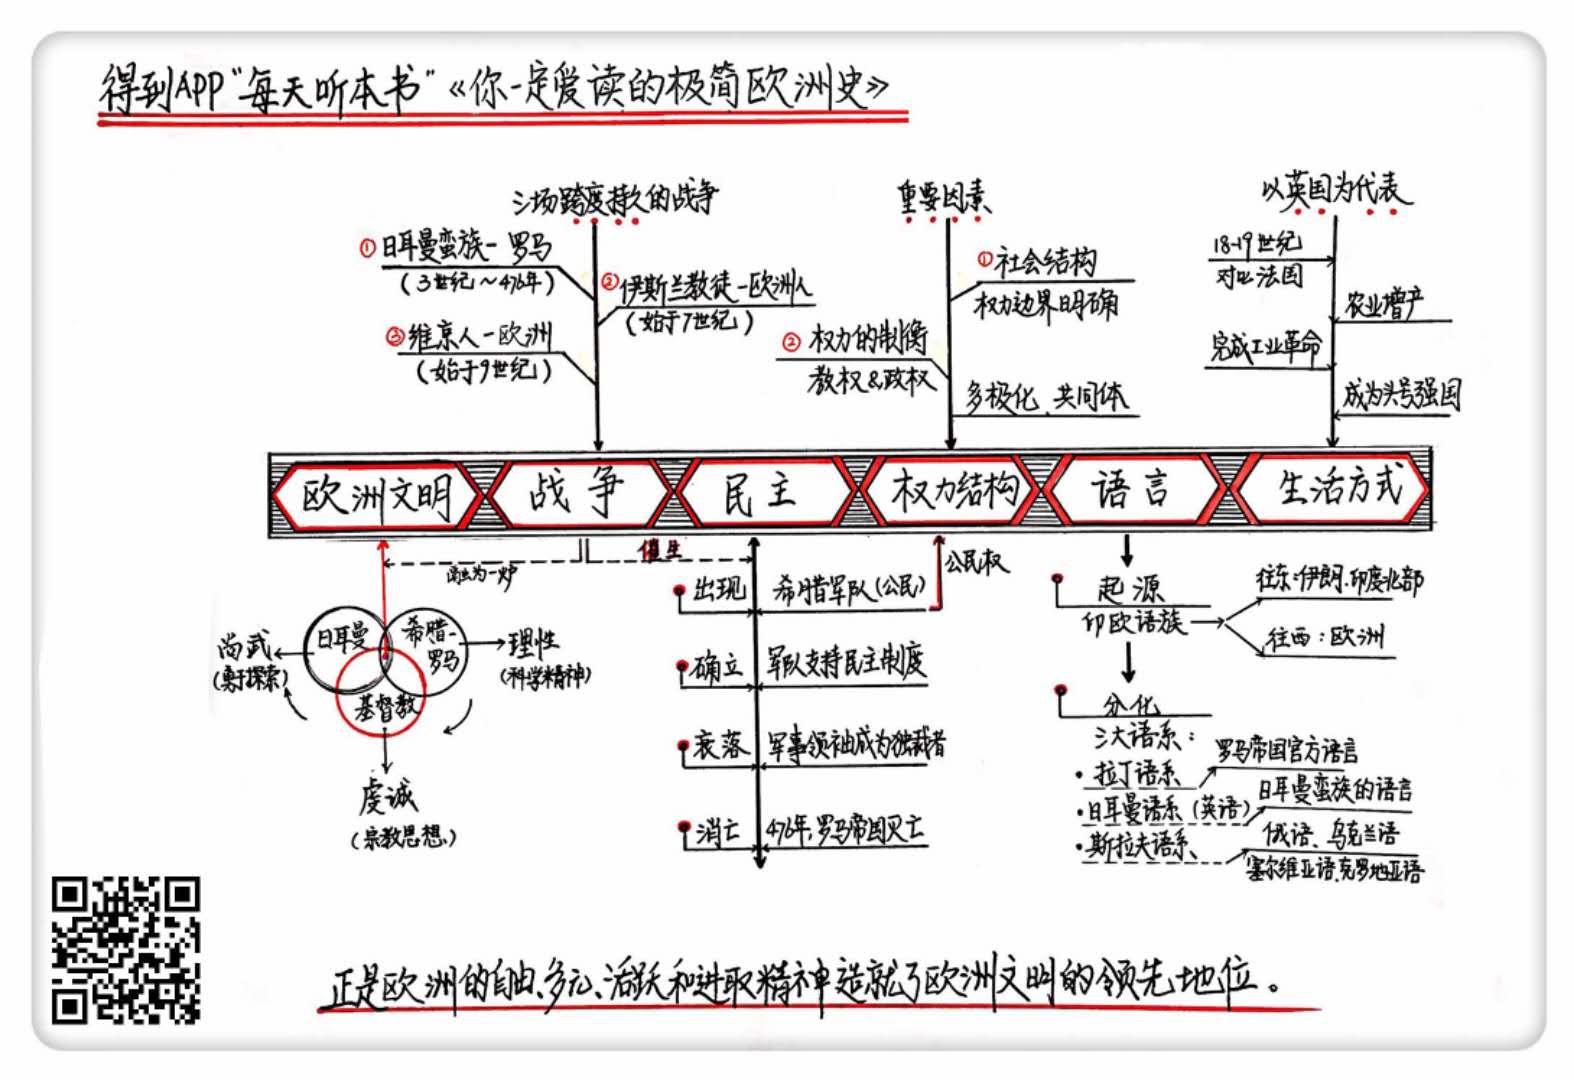 得到APP"每天听本书"《你一定爱读的极简欧洲史》
三场跨度持久的战争
①日耳曼蛮族-罗马
(3世纪~476年)
②伊斯兰教徒-欧洲人
(始于7世纪)
③维京人-欧洲
(始于9世纪)
重要因素
①社会结构
权力边界明确
②权力的制衡
教权&政权
多极化、共同体
以英国为代表
18-19世纪
对比法国
农业增产
完成工业革命
成为头号强国
欧洲文明
战争
民主
权力结构
语言
生活方式
融为一炉
催生
日耳曼
希腊-
罗马
基督教
尚武
(勇于探索)
理性
(科学精神)
虔诚
(宗教思想)
出现
希腊军队(公民)
公民权
确立
军队支持民主制度
衰落
军事领袖成为独裁者
消亡
476年,罗马帝国灭亡
起源
印欧语族
往东:伊朗.印度北部
往西:欧洲
分化
三大语系:
·拉丁语系
罗马帝国官方语言
·日耳曼语系(英语)
日耳曼蛮族的语言
·斯拉夫语系
俄语、乌克兰语
塞尔维亚语、克罗地亚语
正是欧洲的自由、多元、活跃和进取精神造就了欧洲文明的领先地位。